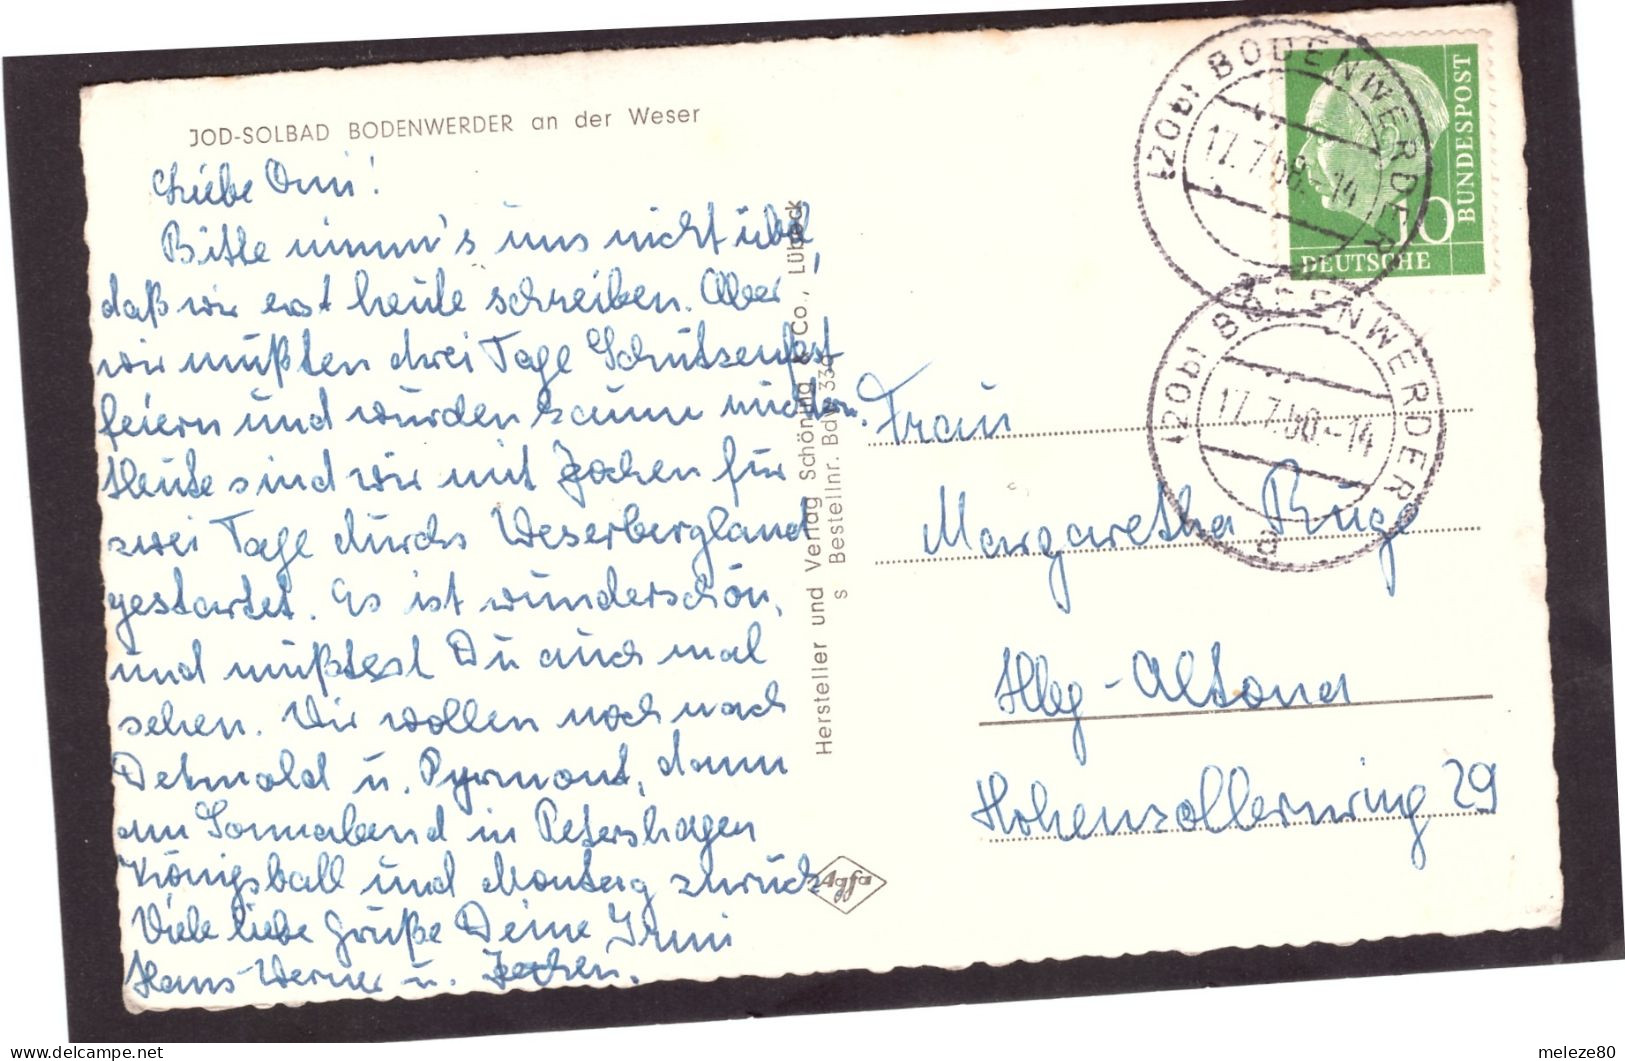 JOD-SOLBAD BODENWERDER an der Weser
Liebe Omi!
Bitte nimm's uns nicht übel,
daß wir erst heute schreiben. Aber
wir mußten drei Tage Schützenfest
feiern und wurden kaum nüchtern.
Heute sind wir mit Jochen für
zwei Tage durchs Weserbergland
gestartet. Es ist wunderschön,
und müßtest Du auch mal
sehen. Wir wollen noch nach
Detmold u. Pyrmont, dann
am Sonnabend in Petershagen
Königsball und Montag zurück
Viele liebe Grüße Deine Irmi
Hans-Werner u. Jochen.
Hersteller und Verlag Schöning & Co., Lübeck
s Bestellnr. BdW 339
Agfa
(20b) BODENWERDER
17.7.58.-14
a
(20b) BODENWERDER
17.7.58.-14
a
10
DEUTSCHE
BUNDESPOST
Frau
Margaretha Ruge
Hbg-Altona
Hohenzollernring 29
meleze80